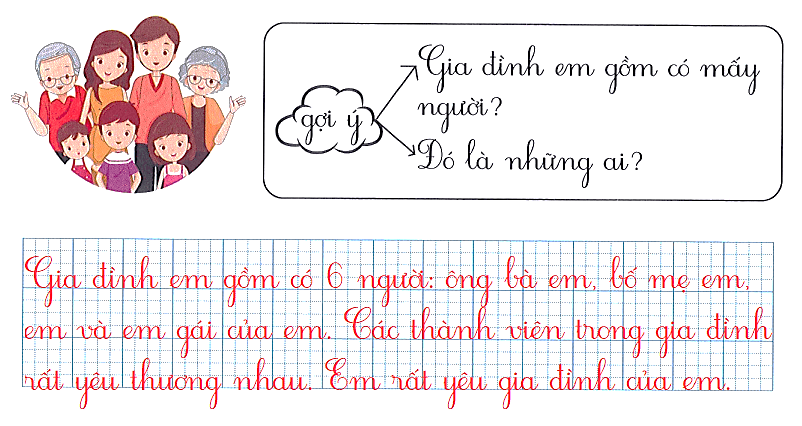 Gia đình em gồm có mấy
người?
gợi ý
Đó là những ai?
Gia đình em gồm có 6 người: ông bà em, bố mẹ em,
em và em gái của em. Các thành viên trong gia đình
rất yêu thương nhau. Em rất yêu gia đình của em.